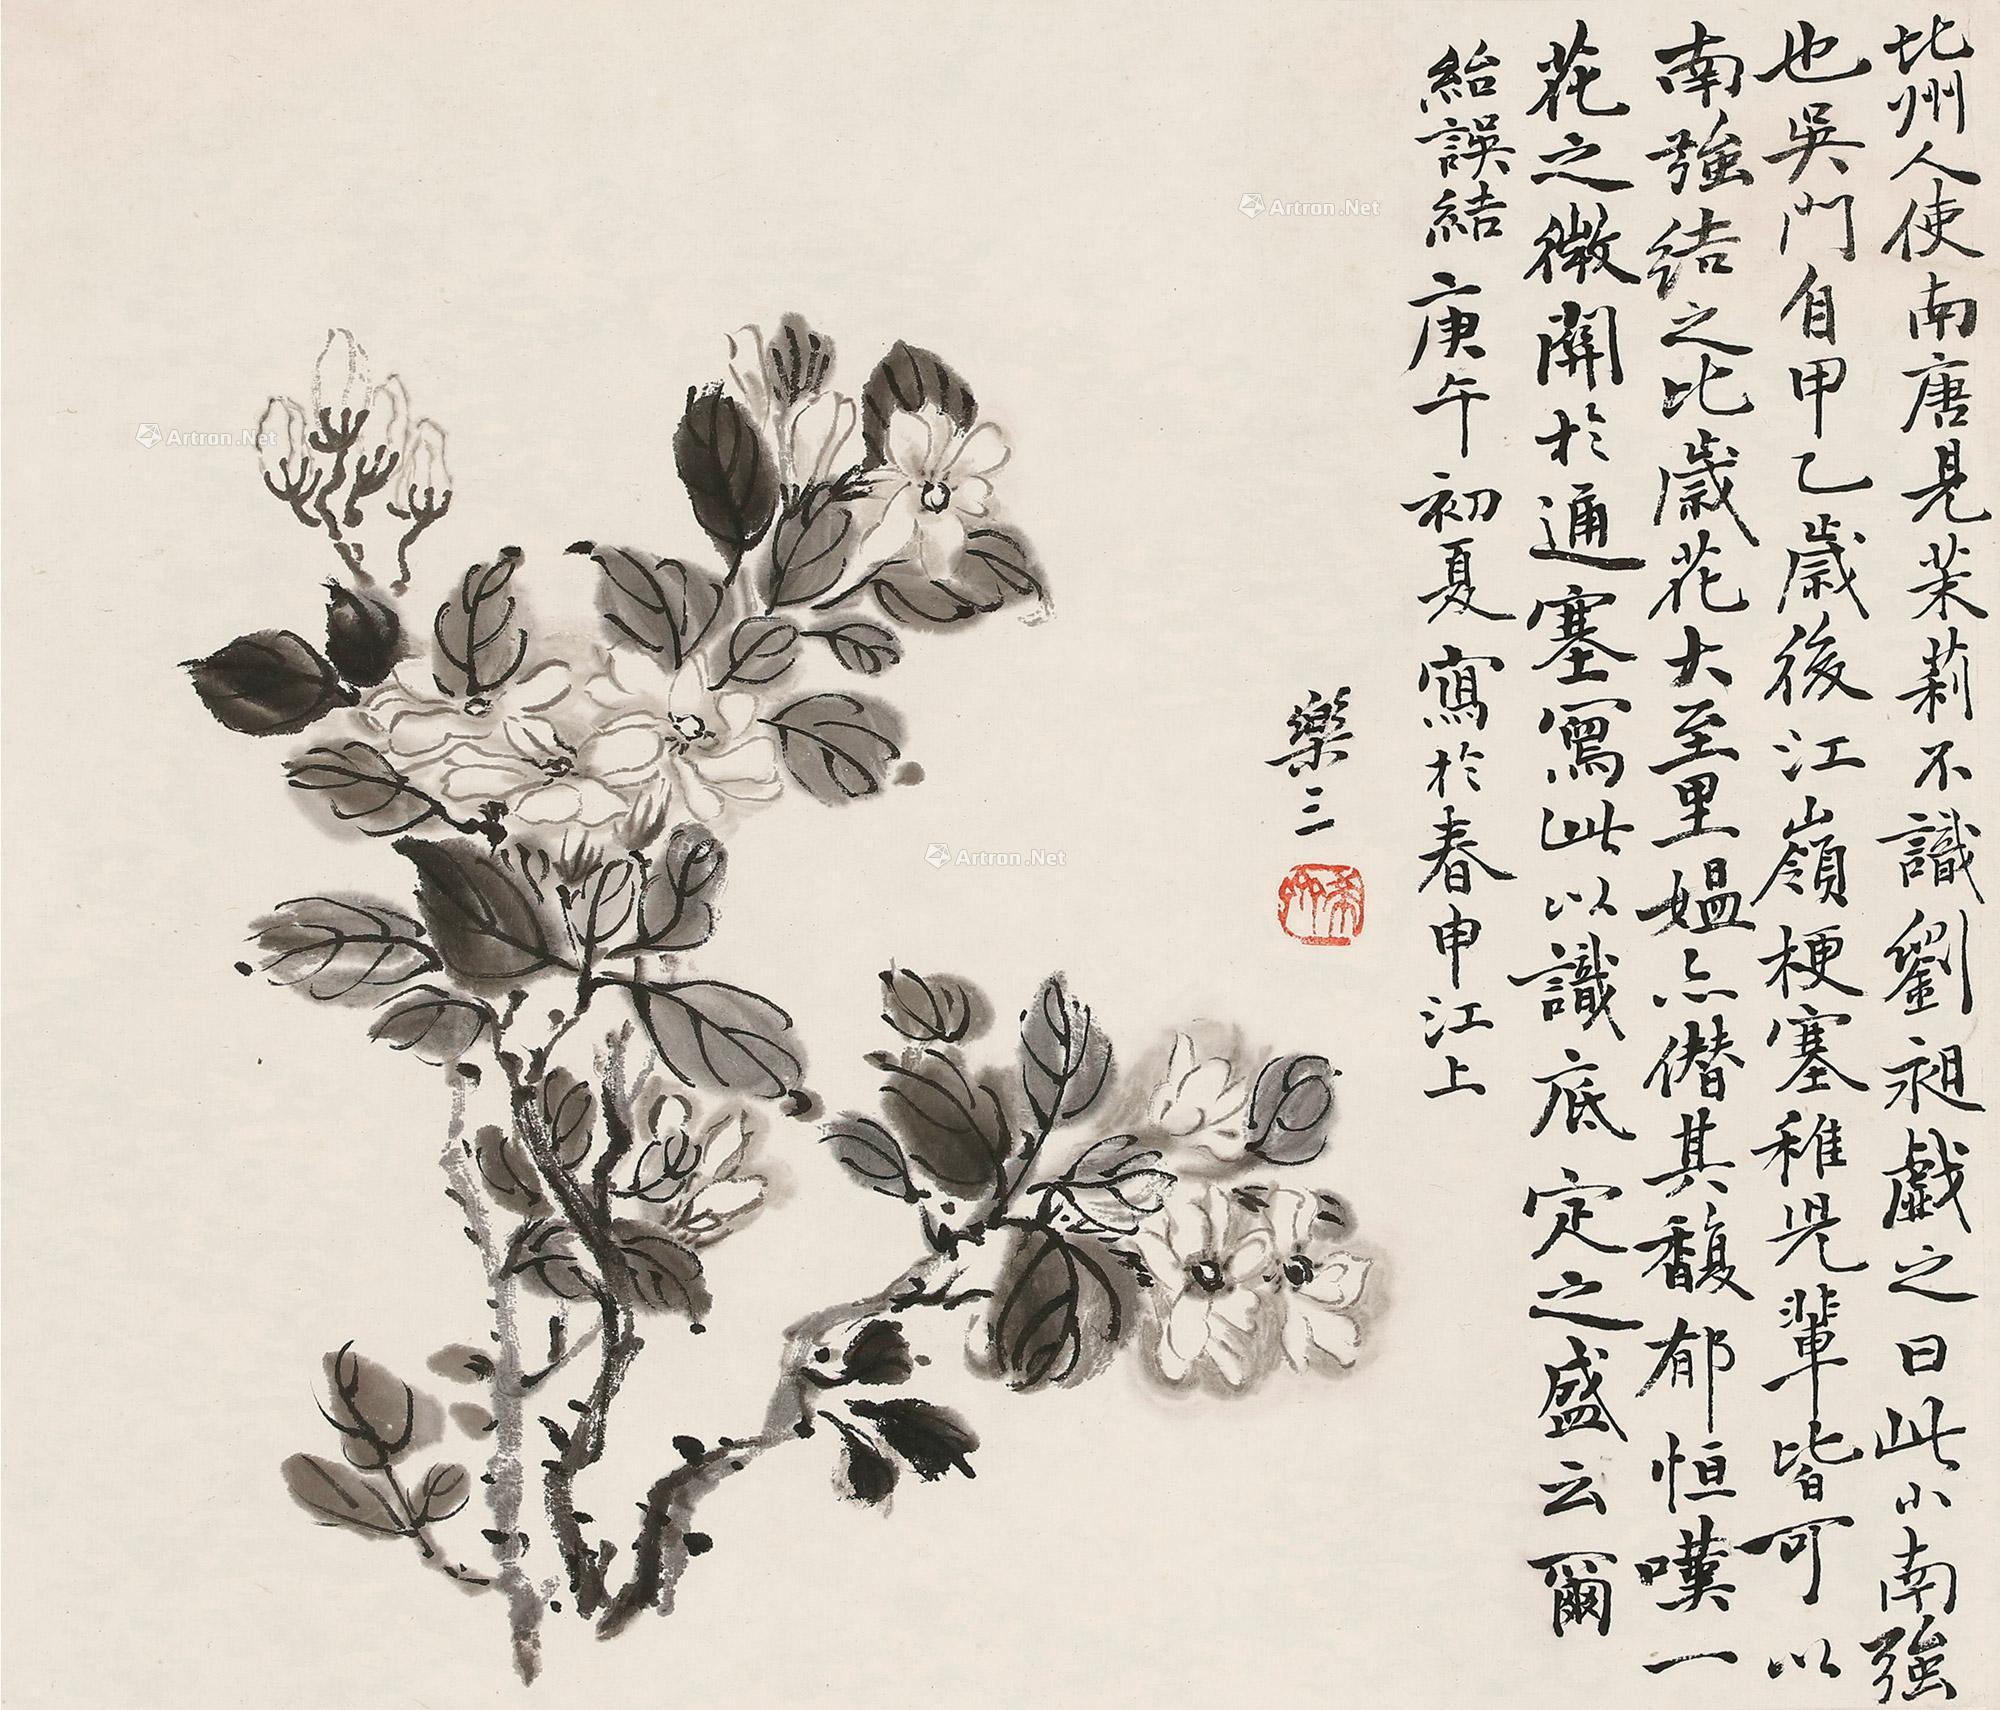 北州人使南唐見茉莉不識劉昶戲之曰此小南強
也吳門自甲乙歲後江嶺梗塞稚兒輩皆可以
南強結之比歲花大至里媼亦僭其馥郁恒嘆一
花之微關於通塞寫此以識底定之盛云爾
紿誤結庚午初夏寫於春申江上
樂三
Artron.Net
Artron.Net
Artron.Net